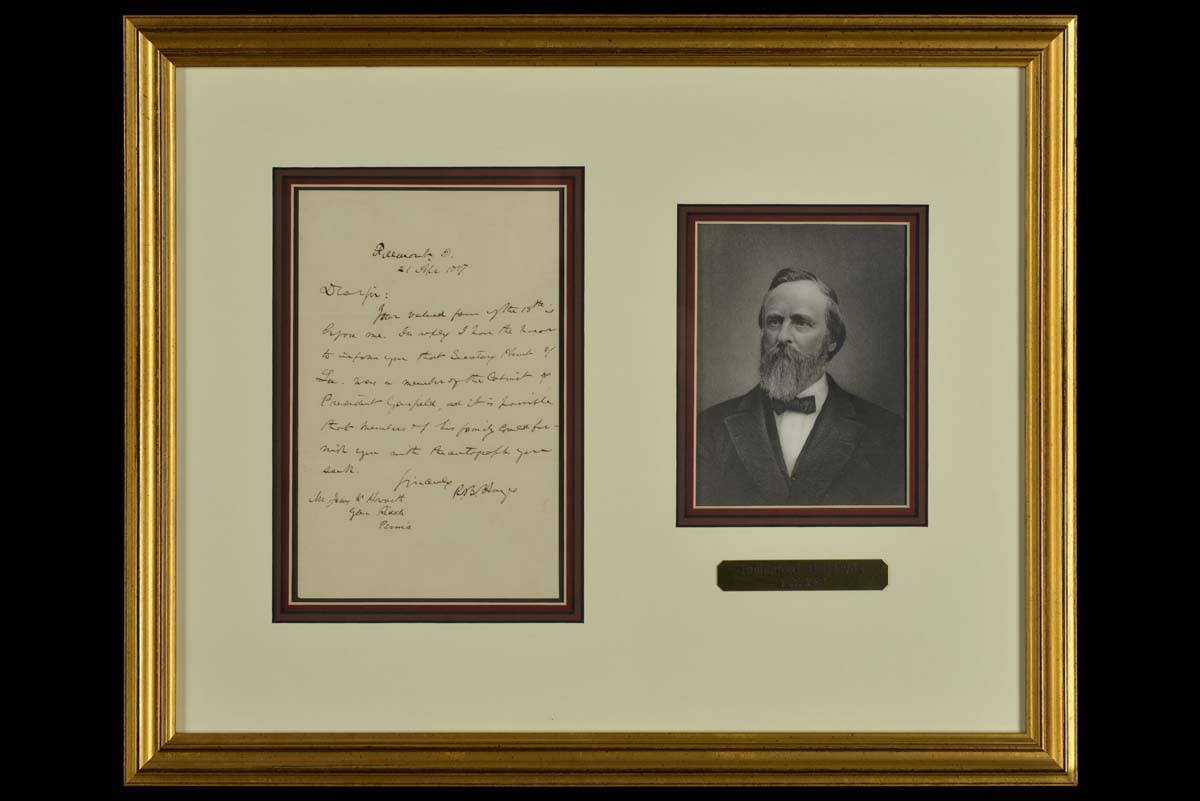 Fremont, O.
21 Apr 1887
Dear Sir:
Your valued favor of the 18th is
before me. In reply I have the honor
to inform you that Secretary Hunt of
La. was a member of the Cabinet of
President Garfield, and it is possible
that members of his family could fur-
nish you with the autograph you
seek.
Sincerely
R.B. Hayes
Mr W Howarth
Glen Riddle
Penn'a